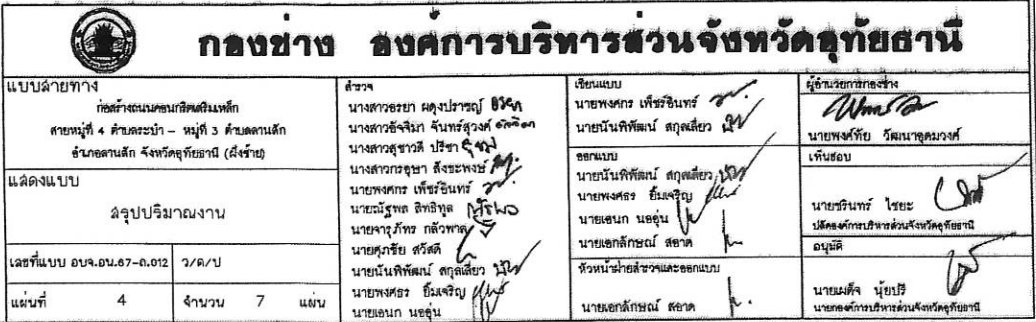 กองช่าง องค์การบริหารส่วนจังหวัดอุทัยธานี
แบบสายทาง
ก่อสร้างถนนคอนกรีตเสริมเหล็ก
สายหมู่ที่ 4 ตำบลระบำ - หมู่ที่ 3 ตำบลลานสัก
อำเภอลานสัก จังหวัดอุทัยธานี (ฝั่งซ้าย)
แสดงแบบ
สรุปปริมาณงาน
เลขที่แบบ อบจ.อน.67-ถ.012 ว/ด/ป
แผ่นที่ 4 จำนวน 7 แผ่น
สำรวจ
นางสาวอรยา ผดุงปราชญ์
นางสาวอัจจิมา จันทร์สุวงศ์
นางสาวสุชาวดี ปรีชา
นางสาวกรอุษา สังขะพงษ์
นายพงศกร เพ็ชร์อินทร์
นายณัฐพล สิทธิทูล
นายจารุภัทร กลัวพาล
นายศุภชัย สวัสดี
นายนันพิพัฒน์ สกุลเลี่ยว
นายพงศธร ยิ้มเจริญ
นายเอนก นออุ่น
เขียนแบบ
นายพงศกร เพ็ชร์อินทร์
นายนันพิพัฒน์ สกุลเลี่ยว
ออกแบบ
นายนันพิพัฒน์ สกุลเลี่ยว
นายพงศธร ยิ้มเจริญ
นายเอนก นออุ่น
นายเอกลักษณ์ สอาด
หัวหน้าฝ่ายสำรวจและออกแบบ
นายเอกลักษณ์ สอาด
ผู้อำนวยการกองช่าง
นายพงศ์ทัย วัฒนาอุดมวงศ์
เห็นชอบ
นายชรินทร์ ไชยะ
ปลัดองค์การบริหารส่วนจังหวัดอุทัยธานี
อนุมัติ
นายเผด็จ นุ้ยปรี
นายกองค์การบริหารส่วนจังหวัดอุทัยธานี